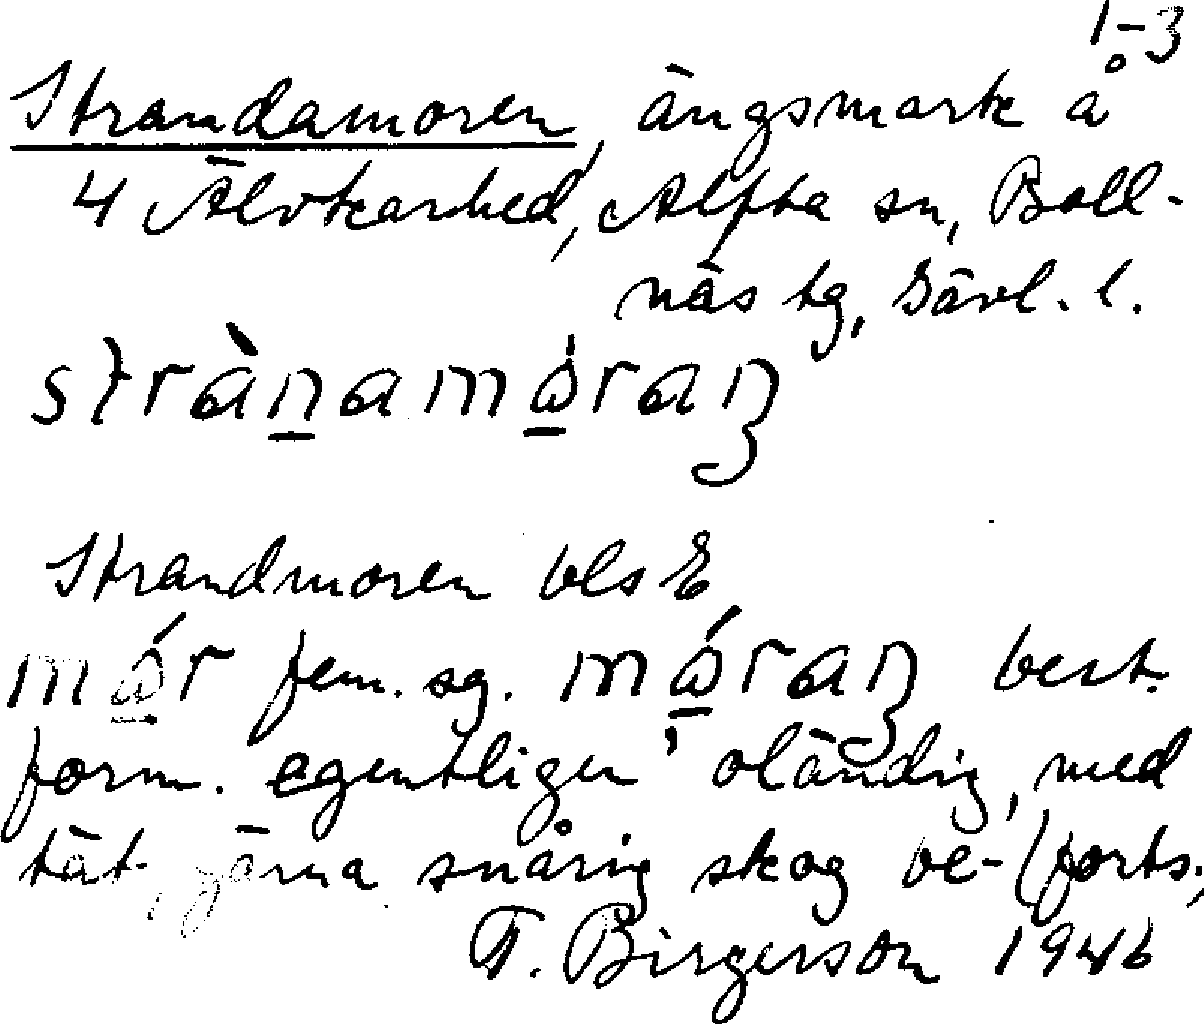 1-3
Strandamoren, ängsmark å
4 Älvkarhed, Alfta sn, Boll-
näs tg, Gävl. l.
Strandmoren bls E
fem. sg. best.
form. egentligen 'oländig, med
tät, gärna snårig skog be- (forts.,
T. Birgerson 1946